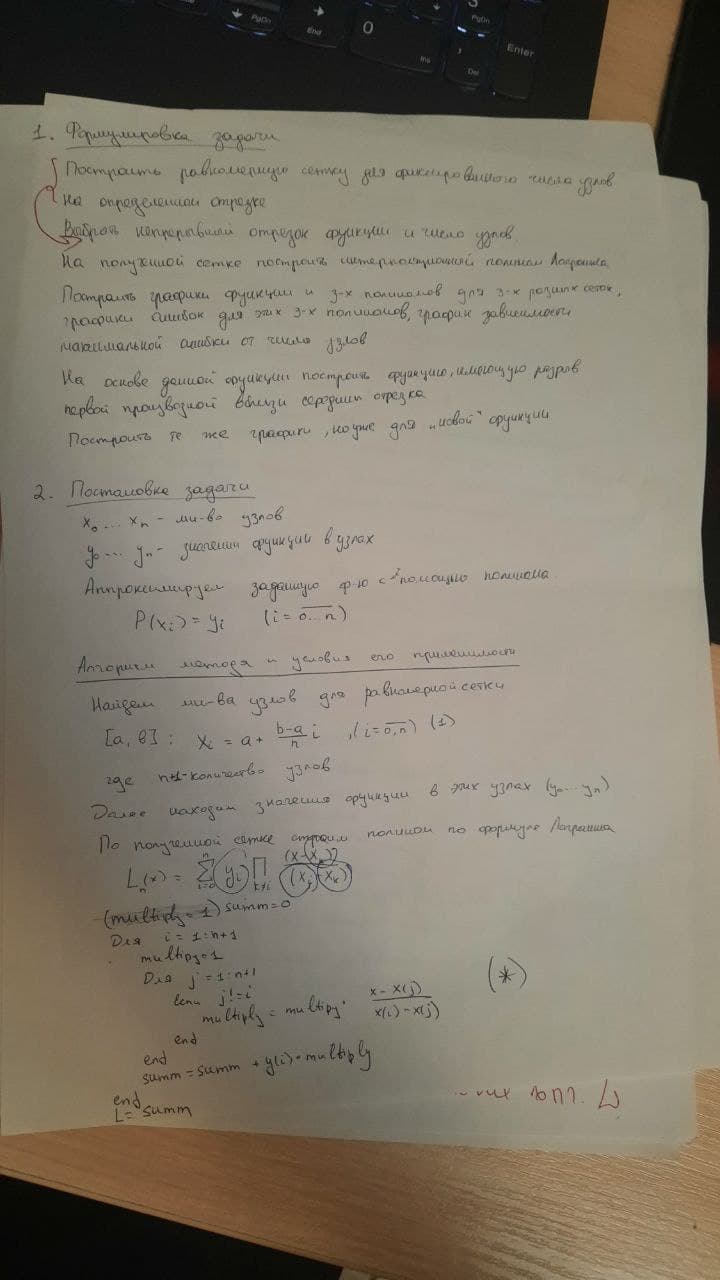 PgDn
End
0
Ins
PgDn
Del
Enter
1. Формулировка задачи
Построить равномерную сетку для фиксированного числа узлов
на определенном отрезке
Выбрать непрерывный отрезок функции и число узлов
На полученной сетке построить интерполяционный полином Лагранжа
Построить графики функции и 3-х полиномов для 3-х разных сеток,
графики ошибок для этих 3-х полиномов, график зависимости
максимальной ошибки от числа узлов
На основе данной функции построить функцию, имеющую разрыв
первой производной вблизи середины отрезка
Построить те же графики, но уже для „новой" функции
2. Постановка задачи
x₀ ... xₙ - мн-во узлов
y₀ ... yₙ - значения функции в узлах
Аппроксимируем заданную ф-ю с помощью полинома
P(xᵢ) = yᵢ (i = 0...n)
Алгоритм метода и условия его применимости
Найдем мн-ва узлов для равномерной сетки
[a, b] : xᵢ = a + (b-a)/n i , (i = 0,n) (1)
где n+1-количество узлов
Далее находим значения функции в этих узлах (y₀...yₙ)
По полученной сетке строим полином по формуле Лагранжа
Lₙ(x) = ∑ⁿᵢ₌₀ yᵢ ∏ₖ≠ᵢ (x-xₖ)/(xⱼ-xₖ)
(multiply = 1) summ=0
Для i = 1:n+1
multipy=1
Для j = 1:n+1
если j!=i
multiply = multipy · (x - x(j))/(x(i) - x(j)) (*)
end
end
summ = summ + y(i) * multiply
end
L = summ